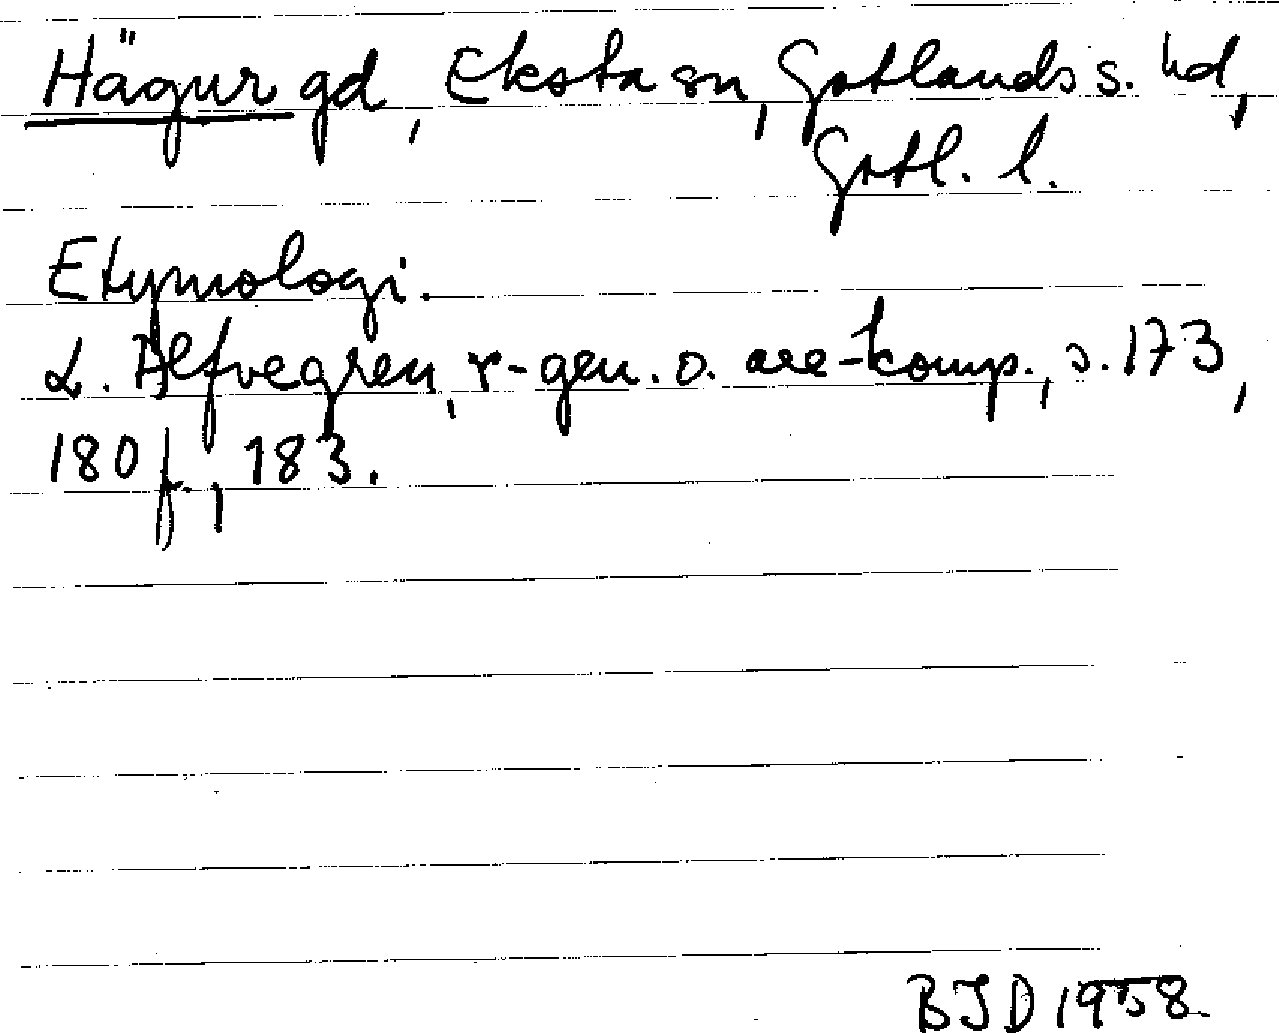 Hägur gd, Eksta sn, Gotlands s. hd,
Gotl. l.
Etymologi.
L. Alfvegren, r-gen. o. are-komp., s. 173,
180 f., 183.
BJD 1958